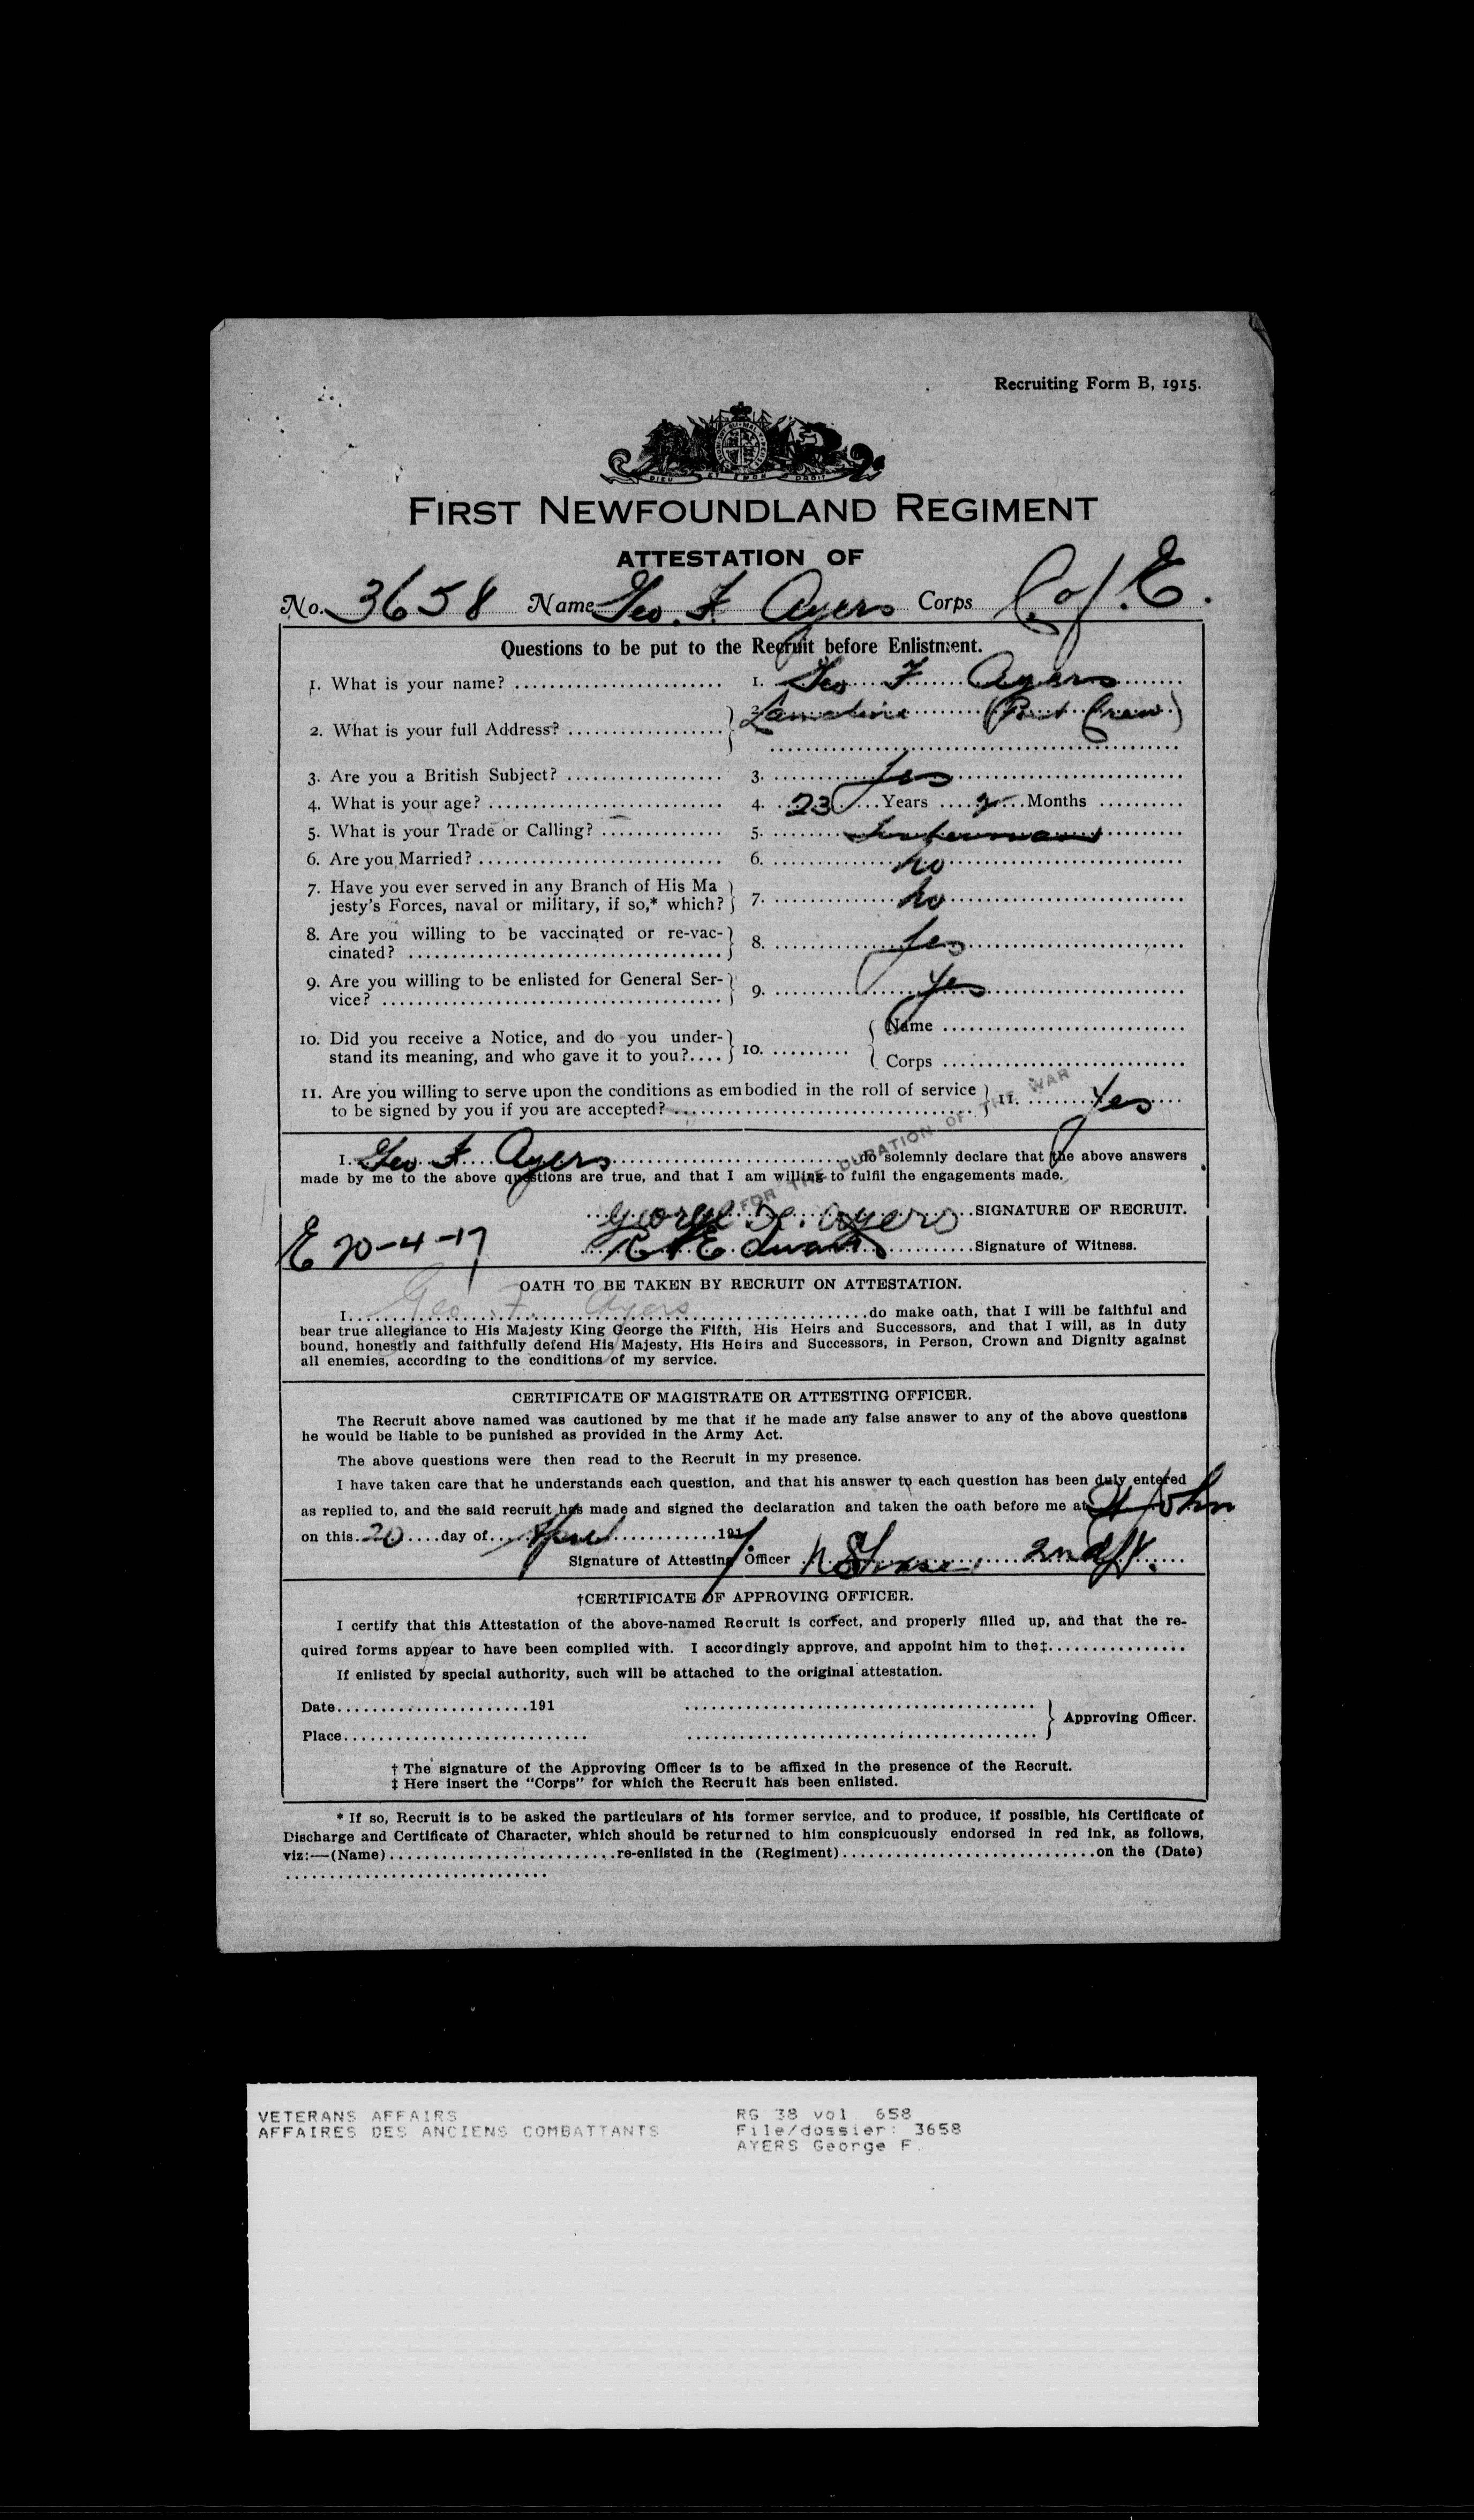 Recruiting Form B, 1915.
DIEU ET MON DROIT
FIRST NEWFOUNDLAND REGIMENT
ATTESTATION OF
No. 3658 Name Geo. F. Ayers Corps C of E.
Questions to be put to the Recruit before Enlistment.
1. What is your name? 1. Geo F Ayers
2. What is your full Address? 2. Lamaline
3. Are you a British Subject? 3. Yes
4. What is your age? 4. 23 Years 2 Months
5. What is your Trade or Calling? 5.
6. Are you Married? 6. no
7. Have you ever served in any Branch of His Ma
jesty's Forces, naval or military, if so,* which? 7. no
8. Are you willing to be vaccinated or re-vac-
cinated? 8. Yes
9. Are you willing to be enlisted for General Ser-
vice? 9. Yes
10. Did you receive a Notice, and do you under-
stand its meaning, and who gave it to you?.... 10. Name
Corps
11. Are you willing to serve upon the conditions as embodied in the roll of service
to be signed by you if you are accepted? 11. Yes
FOR THE DURATION OF THE WAR
I. Geo F Ayers do solemnly declare that the above answers
made by me to the above questions are true, and that I am willing to fulfil the engagements made.
George F. Ayers SIGNATURE OF RECRUIT.
E 20-4-17 Signature of Witness.
OATH TO BE TAKEN BY RECRUIT ON ATTESTATION.
I. Geo. F. Ayers do make oath, that I will be faithful and
bear true allegiance to His Majesty King George the Fifth, His Heirs and Successors, and that I will, as in duty
bound, honestly and faithfully defend His Majesty, His Heirs and Successors, in Person, Crown and Dignity against
all enemies, according to the conditions of my service.
CERTIFICATE OF MAGISTRATE OR ATTESTING OFFICER.
The Recruit above named was cautioned by me that if he made any false answer to any of the above questions
he would be liable to be punished as provided in the Army Act.
The above questions were then read to the Recruit in my presence.
I have taken care that he understands each question, and that his answer to each question has been duly entered
as replied to, and the said recruit has made and signed the declaration and taken the oath before me at St John
on this 20 day of April 1917.
Signature of Attesting Officer 2nd Lt.
†CERTIFICATE OF APPROVING OFFICER.
I certify that this Attestation of the above-named Recruit is correct, and properly filled up, and that the re-
quired forms appear to have been complied with. I accordingly approve, and appoint him to the‡
If enlisted by special authority, such will be attached to the original attestation.
Date 191
Approving Officer.
Place
† The signature of the Approving Officer is to be affixed in the presence of the Recruit.
‡ Here insert the "Corps" for which the Recruit has been enlisted.
* If so, Recruit is to be asked the particulars of his former service, and to produce, if possible, his Certificate of
Discharge and Certificate of Character, which should be returned to him conspicuously endorsed in red ink, as follows,
viz:—(Name) re-enlisted in the (Regiment) on the (Date)
VETERANS AFFAIRS RG 38 vol. 658
AFFAIRES DES ANCIENS COMBATTANTS File/dossier: 3658
AYERS George F.